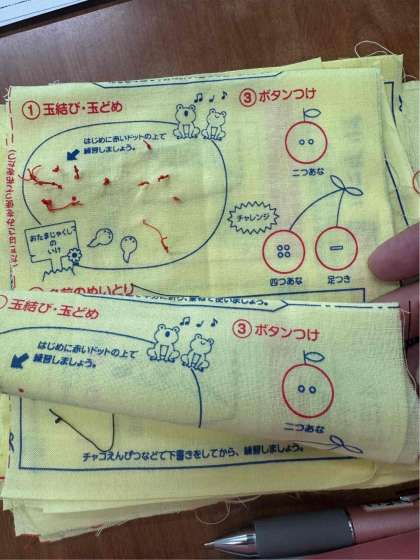 ①玉結び・玉どめ
③ボタンつけ
はじめに赤いドットの上で
練習しましょう。
二つあな
チャレンジ
おたまじゃくしの
いけ
四つあな
足つき
玉結び・玉どめ
③ボタンつけ
はじめに赤いドットの上で
練習しましょう。
二つあな
チャコえんぴつなどで下書きをしてから、練習しましょう。